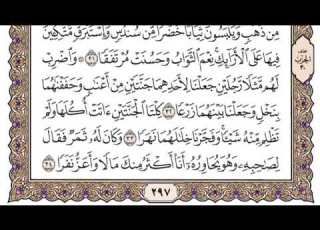 مِن ذَهَبٍ وَيَلْبَسُونَ ثِيَابًا خُضْرًا مِّن سُندُسٍ وَإِسْتَبْرَقٍ مُّتَّكِـِٔينَ
فِيهَا عَلَى ٱلْأَرَآئِكِ نِعْمَ ٱلثَّوَابُ وَحَسُنَتْ مُرْتَفَقًا ٣١ وَٱضْرِبْ
لَهُم مَّثَلًا رَّجُلَيْنِ جَعَلْنَا لِأَحَدِهِمَا جَنَّتَيْنِ مِنْ أَعْنَٰبٍ وَحَفَفْنَٰهُمَا
بِنَخْلٍ وَجَعَلْنَا بَيْنَهُمَا زَرْعًا ٣٢ كِلْتَا ٱلْجَنَّتَيْنِ ءَاتَتْ أُكُلَهَا وَلَمْ
تَظْلِم مِّنْهُ شَيْـًٔا وَفَجَّرْنَا خِلَٰلَهُمَا نَهَرًا ٣٣ وَكَانَ لَهُۥ ثَمَرٌ فَقَالَ
لِصَٰحِبِهِۦ وَهُوَ يُحَاوِرُهُۥٓ أَنَا۠ أَكْثَرُ مِنكَ مَالًا وَأَعَزُّ نَفَرًا ٣٤
٢٩٧